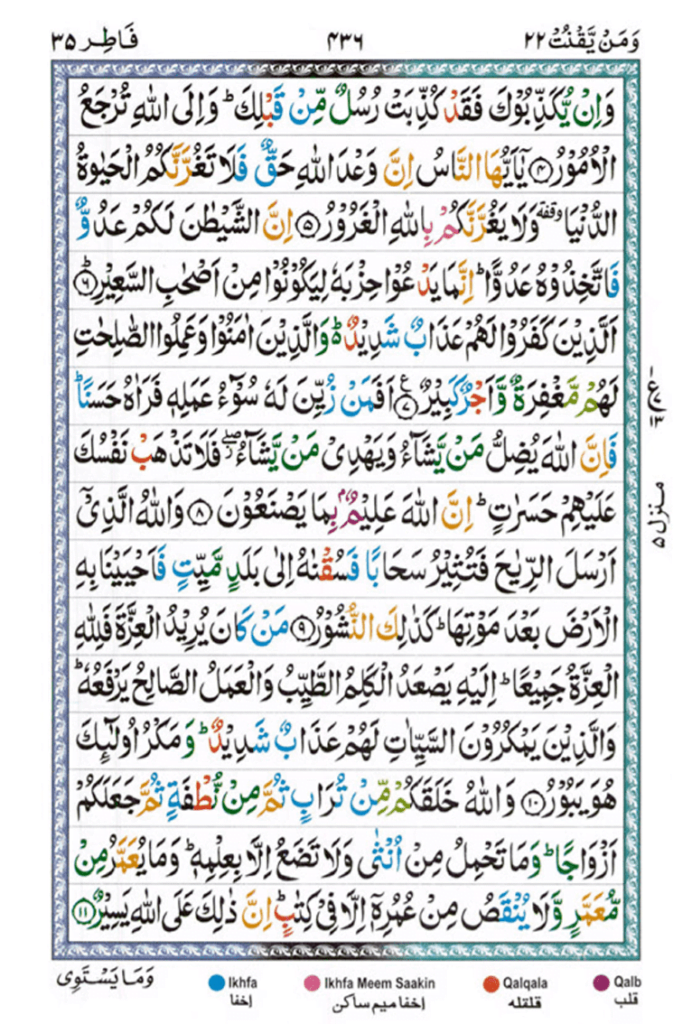 وَمَنْ يَّقْنُتْ ٢٢ ۴۳۶ فَاطِر ۳۵
وَاِنْ يُّكَذِّبُوْكَ فَقَدْ كُذِّبَتْ رُسُلٌ مِّنْ قَبْلِكَ ؕ وَاِلَى اللّٰهِ تُرْجَعُ
الْاُمُوْرُ ۴ يٰۤاَيُّهَا النَّاسُ اِنَّ وَعْدَ اللّٰهِ حَقٌّ فَلَا تَغُرَّنَّكُمُ الْحَيٰوةُ
الدُّنْيَا ۥوقفة وَلَا يَغُرَّنَّكُمْ بِاللّٰهِ الْغَرُوْرُ ۵ اِنَّ الشَّيْطٰنَ لَكُمْ عَدُوٌّ
فَاتَّخِذُوْهُ عَدُوًّا ؕ اِنَّمَا يَدْعُوْا حِزْبَهٗ لِيَكُوْنُوْا مِنْ اَصْحٰبِ السَّعِيْرِ ؕ ۶
اَلَّذِيْنَ كَفَرُوْا لَهُمْ عَذَابٌ شَدِيْدٌ ؕ۬ وَالَّذِيْنَ اٰمَنُوْا وَعَمِلُوا الصّٰلِحٰتِ
لَهُمْ مَّغْفِرَةٌ وَّاَجْرٌ كَبِيْرٌ ۧ ۷ اَفَمَنْ زُيِّنَ لَهٗ سُوْٓءُ عَمَلِهٖ فَرَاٰهُ حَسَنًا ؕ
فَاِنَّ اللّٰهَ يُضِلُّ مَنْ يَّشَآءُ وَيَهْدِيْ مَنْ يَّشَآءُ ۖؗ فَلَا تَذْهَبْ نَفْسُكَ
عَلَيْهِمْ حَسَرٰتٍ ؕ اِنَّ اللّٰهَ عَلِيْمٌۢ بِمَا يَصْنَعُوْنَ ۸ وَاللّٰهُ الَّذِيْۤ
اَرْسَلَ الرِّيٰحَ فَتُثِيْرُ سَحَابًا فَسُقْنٰهُ اِلٰى بَلَدٍ مَّيِّتٍ فَاَحْيَيْنَا بِهِ
الْاَرْضَ بَعْدَ مَوْتِهَا ؕ كَذٰلِكَ النُّشُوْرُ ۹ مَنْ كَانَ يُرِيْدُ الْعِزَّةَ فَلِلّٰهِ
الْعِزَّةُ جَمِيْعًا ؕ اِلَيْهِ يَصْعَدُ الْكَلِمُ الطَّيِّبُ وَالْعَمَلُ الصَّالِحُ يَرْفَعُهٗ ؕ
وَالَّذِيْنَ يَمْكُرُوْنَ السَّيِّاٰتِ لَهُمْ عَذَابٌ شَدِيْدٌ ؕ وَمَكْرُ اُولٰٓئِكَ
هُوَ يَبُوْرُ ۱۰ وَاللّٰهُ خَلَقَكُمْ مِّنْ تُرَابٍ ثُمَّ مِنْ نُّطْفَةٍ ثُمَّ جَعَلَكُمْ
اَزْوَاجًا ؕ وَمَا تَحْمِلُ مِنْ اُنْثٰى وَلَا تَضَعُ اِلَّا بِعِلْمِهٖ ؕ وَمَا يُعَمَّرُ مِنْ
مُّعَمَّرٍ وَّلَا يُنْقَصُ مِنْ عُمُرِهٖۤ اِلَّا فِيْ كِتٰبٍ ؕ اِنَّ ذٰلِكَ عَلَى اللّٰهِ يَسِيْرٌ ۱۱
ع
۱۳
منزل ۵
وَمَا يَسْتَوِي
Ikhfa
إخفا
Ikhfa Meem Saakin
إخفا ميم ساكن
Qalqala
قلقله
Qalb
قلب